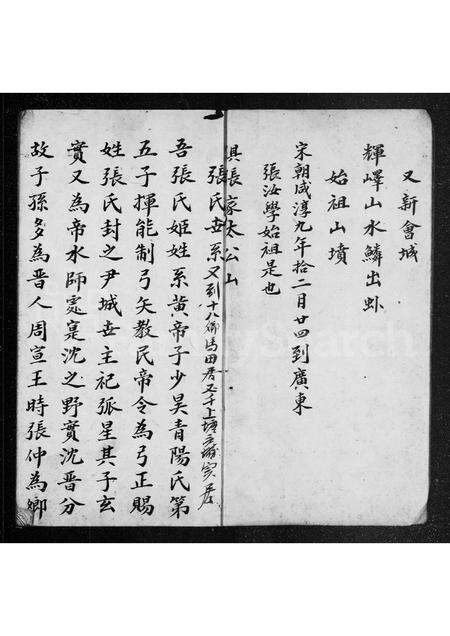 又新會城
輝嶧山水鱗出卦
始祖山墳
宋朝咸淳九年拾二月廿四到廣東
張汝學始祖是也
俱張家太公山
張氏世系又到十八鄉馬田
吾張氏姬姓系黃帝子少昊青陽氏第
五子揮能制弓矢教民帝令為弓正賜
姓張氏封之尹城世主祀弧星其子玄
實又為帝水師處寔沈之野實沈晋分
故子孫多為晋人周宣王時張仲為卿